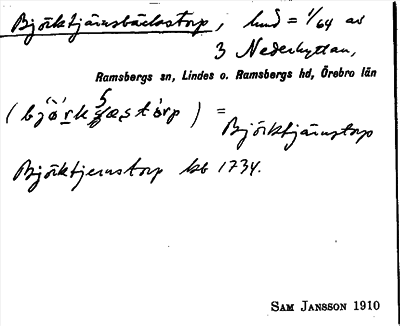 Björktjärnsbäckstorp, hmd = 1/64 av
3 Nederhyttan,
Ramsbergs sn, Lindes o. Ramsbergs hd, Örebro län
(bjo̱rk tjæstorp) =
Björktjärnstorp
Björktjernstorp kb 1734.
SAM JANSSON 1910